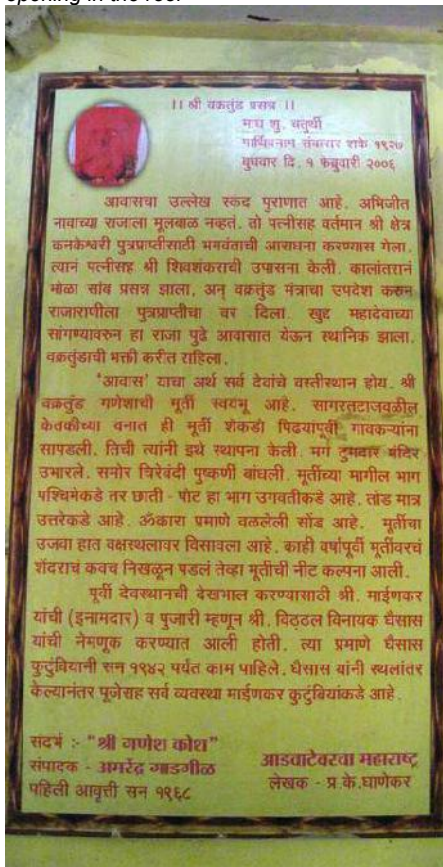 opening in the roof
।। श्री वक्रतुंड प्रसन्न ।।
माघ शु. चतुर्थी
पार्थिवनाम संवत्सर शके १९२७
बुधवार दि. १ फेब्रुवारी २००६
आवासचा उल्लेख स्कंद पुराणात आहे. अभिजीत
नावाच्या राजाला मूलबाळ नव्हतं. तो पत्नीसह वर्तमान श्री क्षेत्र
कनकेश्वरी पुत्रप्राप्तीसाठी भगवंताची आराधना करण्यास गेला.
त्यानं पत्नीसह श्री शिवशंकराची उपासना केली. कालांतरानं
भोळा सांब प्रसन्न झाला, अन् वक्रतुंड मंत्राचा उपदेश करुन
राजाराणीला पुत्रप्राप्तीचा वर दिला. खुद्द महादेवाच्या
सांगण्यावरुन हा राजा पुढे आवासात येऊन स्थानिक झाला.
वक्रतुंडाची भक्ती करीत राहिला.
'आवास' याचा अर्थ सर्व देवांचे वस्तीस्थान होय. श्री
वक्रतुंड गणेशाची मूर्ती स्वयंभू आहे. सागरतटाजवळील
केतकीच्या वनात ही मूर्ती शेकडो पिढयांपूर्वी गावकऱ्यांना
सापडली. तिची त्यांनी इथे स्थापना केली. मग टुमदार मंदिर
उभारले. समोर चिरेबंदी पुष्कर्णी बांधली. मूर्तीच्या मागील भाग
पश्चिमेकडे तर छाती - पोट हा भाग उगवतीकडे आहे. तोंड मात्र
उत्तरेकडे आहे. ॐकारा प्रमाणे वळलेली सोंड आहे. मूर्तीचा
उजवा हात वक्षस्थलावर विसावला आहे. काही वर्षापूर्वी मूर्तीवरचं
शेंदराचं कवच निखळून पडलं तेव्हा मूर्तीची नीट कल्पना आली.
पूर्वी देवस्थानची देखभाल करण्यासाठी श्री. माईणकर
यांची (इनामदार) व पुजारी म्हणून श्री. विठ्ठल विनायक घैसास
यांची नेमणूक करण्यात आली होती. त्या प्रमाणे घैसास
कुटुंबियानी सन १९४२ पर्यंत काम पाहिले. घैसास यांनी स्थलांतर
केल्यानंतर पूजेसह सर्व व्यवस्था माईणकर कुटुंबियांकडे आहे.
संदर्भ :- "श्री गणेश कोश"
संपादक - अमरेंद्र गाडगीळ
पहिली आवृत्ती सन १९६८
आडवाटेवरचा महाराष्ट्र
लेखक - प्र.के.घाणेकर